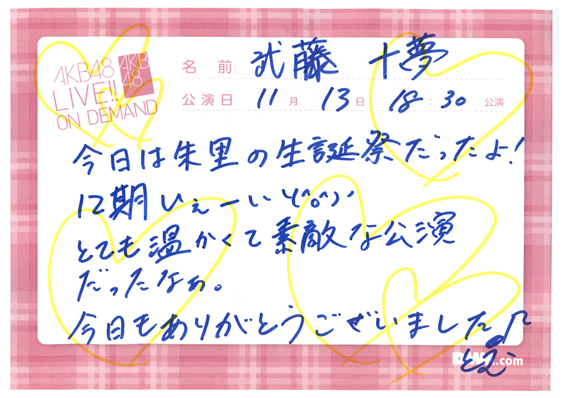 AKB48
LIVE!!
ON DEMAND
AKB
48
名前 武藤 十夢
公演日 11月 13日 18:30 公演
今日は朱里の生誕祭だったよ!
12期いぇーいヽ(^o^)丿
とても温かくて素敵な公演
だったなぁ。
今日もありがとうございました♪
とむ
.com